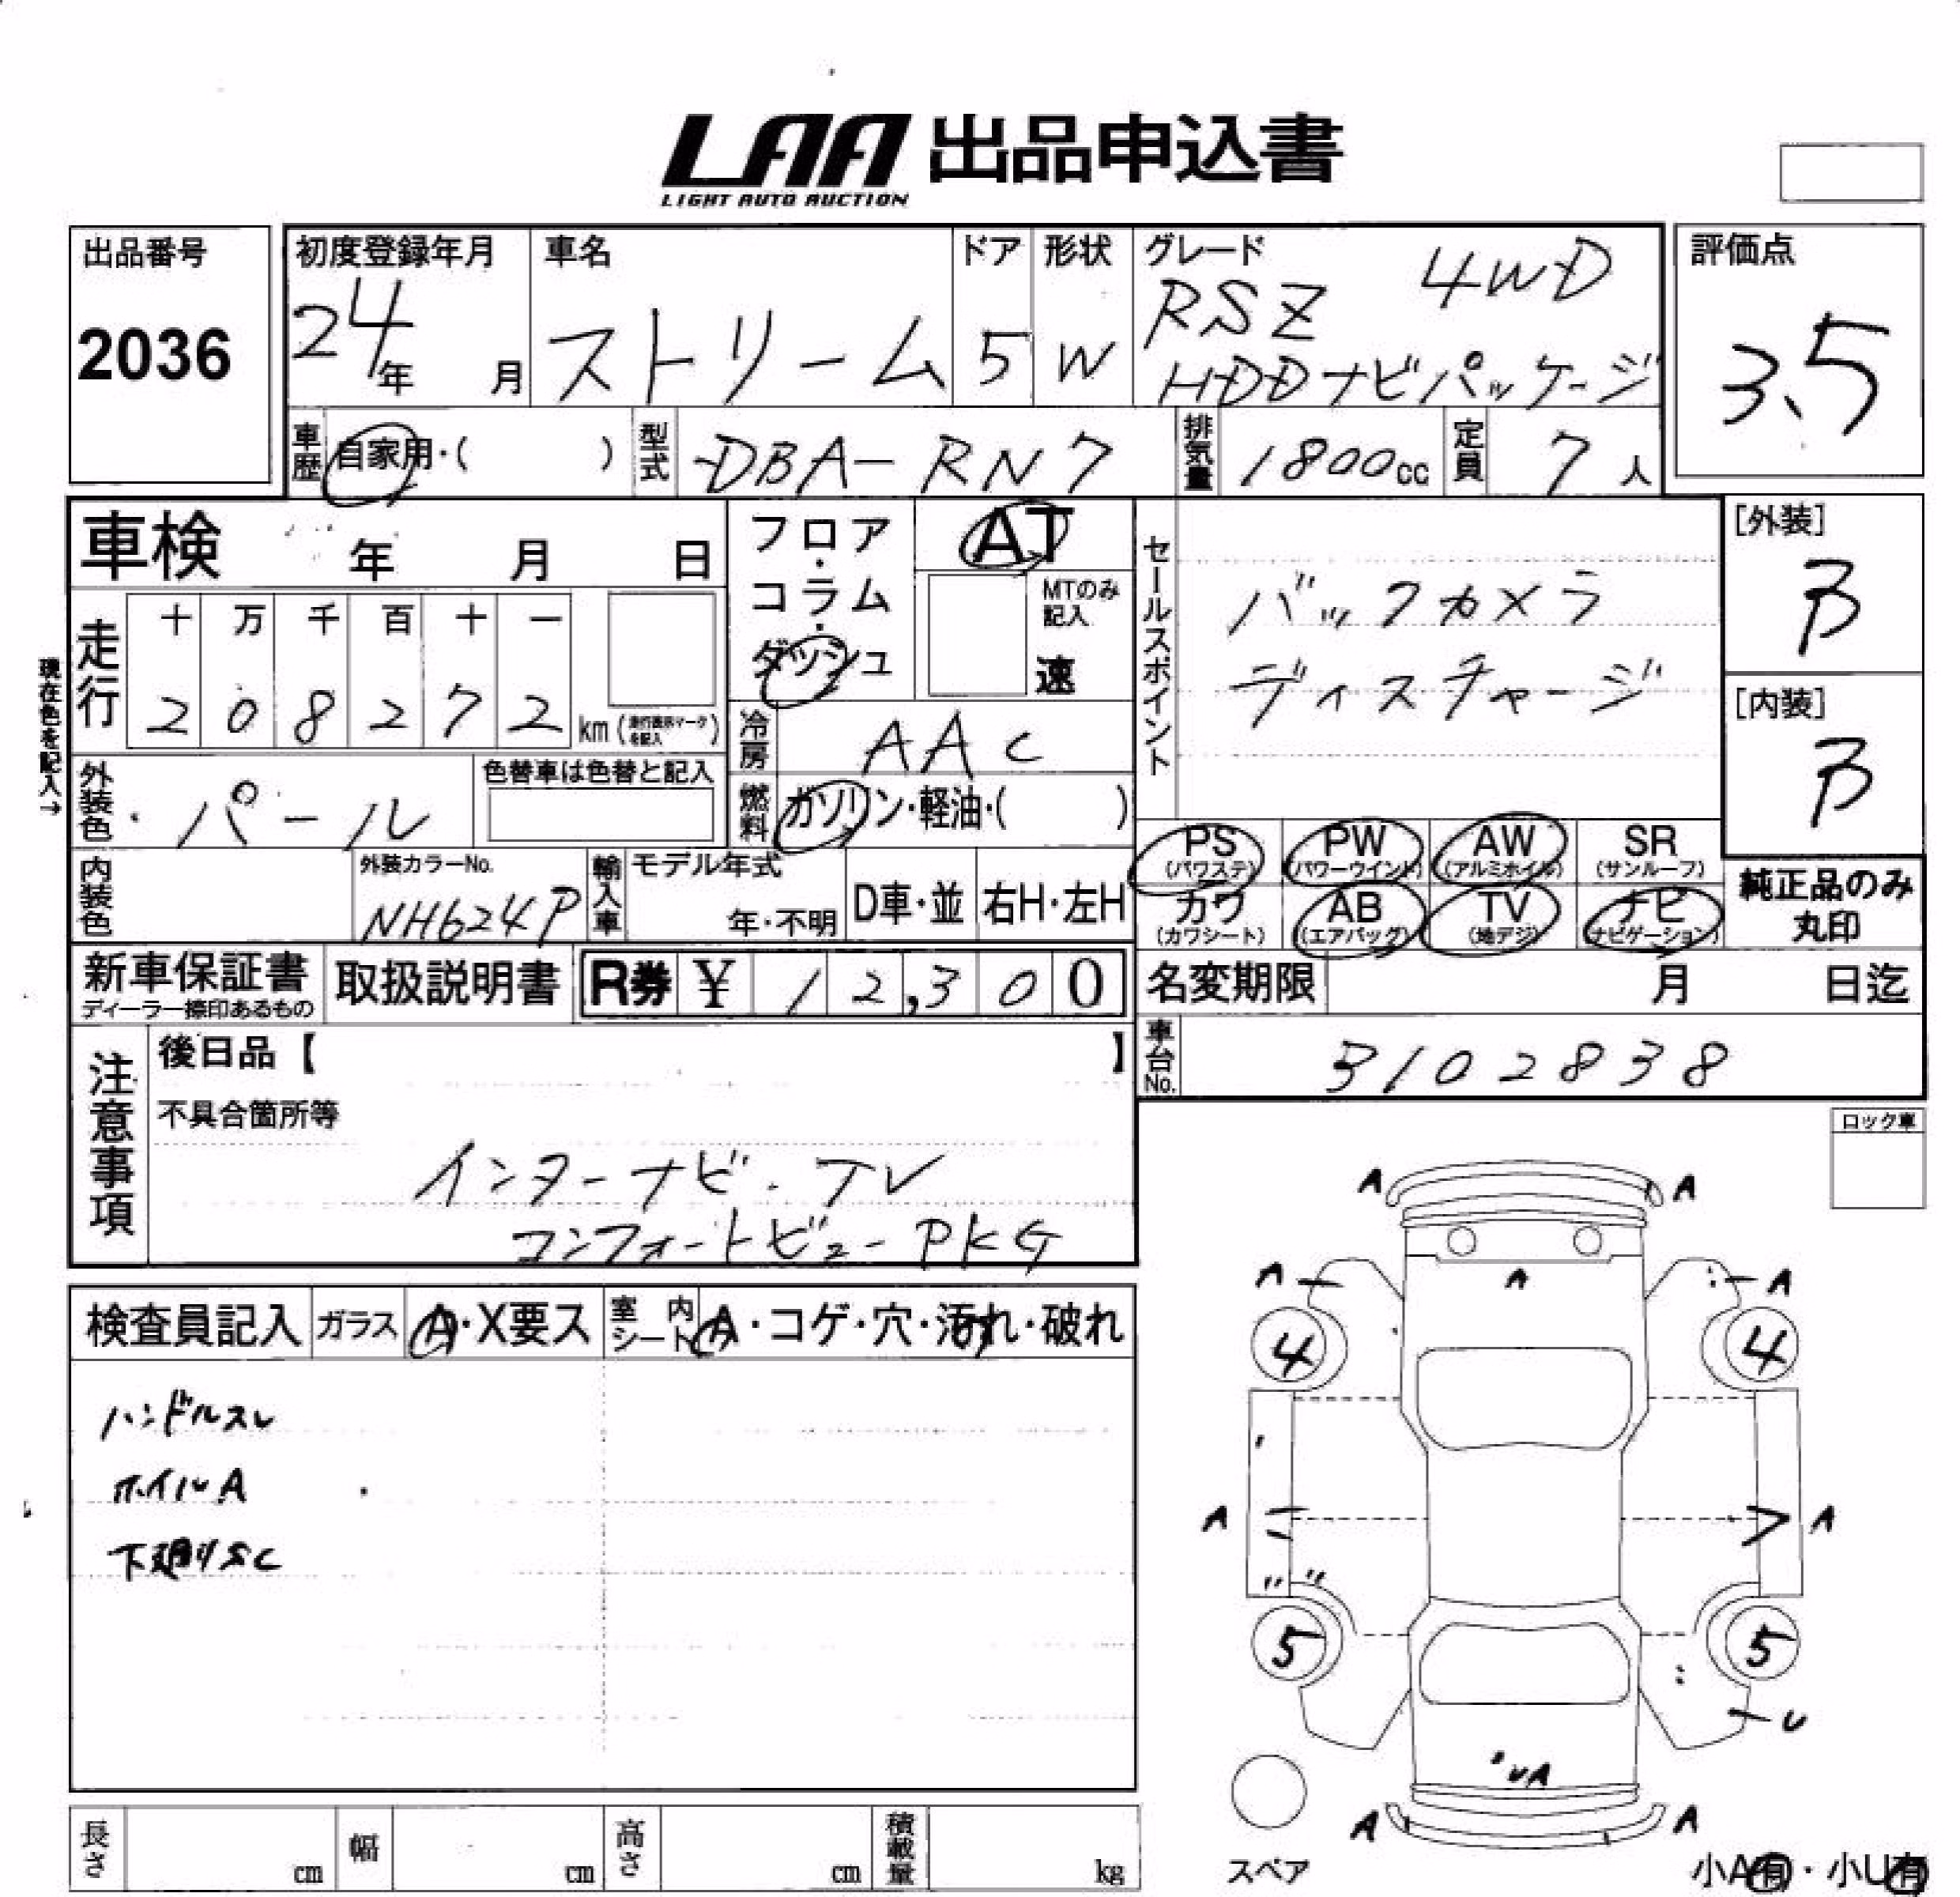 LAA 出品申込書
LIGHT AUTO AUCTION
出品番号
2036
初度登録年月
24年 月
車名
ストリーム
ドア
5
形状
W
グレード
RSZ 4WD
HDDナビパッケージ
評価点
3.5
車歴 自家用・( )
型式 DBA-RN7
排気量 1800cc
定員 7人
車検 年 月 日
フロア・コラム・ダッシュ
AT
MTのみ記入
速
セールスポイント
バックカメラ
ディスチャージ
[外装]
B
[内装]
B
現在色を記入→
走行
十 万 千 百 十 一
2 0 8 2 7 2 km (走行表示マークを記入)
冷房 AAC
外装色 パール
色替車は色替と記入
燃料 ガソリン・軽油・( )
PS (パワステ)
PW (パワーウインド)
AW (アルミホイル)
SR (サンルーフ)
カワ (カワシート)
AB (エアバッグ)
TV (地デジ)
ナビ (ナビゲーション)
純正品のみ
丸印
内装色
外装カラーNo.
NH624P
輸入車
モデル年式
年・不明
D車・並
右H・左H
新車保証書
ディーラー捺印あるもの
取扱説明書
R券 ¥ 1 2,3 0 0
名変期限 月 日迄
車台No. 3102838
注意事項
後日品【 】
不具合箇所等
インターナビ・TV
コンフォートビューPKG
ロック車
検査員記入
ガラス A・X要ス
室内シート A・コゲ・穴・汚れ・破れ
ハンドルスレ
ホイルA
下廻りSC
A A
A A A
4 4
A A
5 5
U
UA
A A
スペア
小A有・小U有
長さ cm
幅 cm
高さ cm
積載量 kg